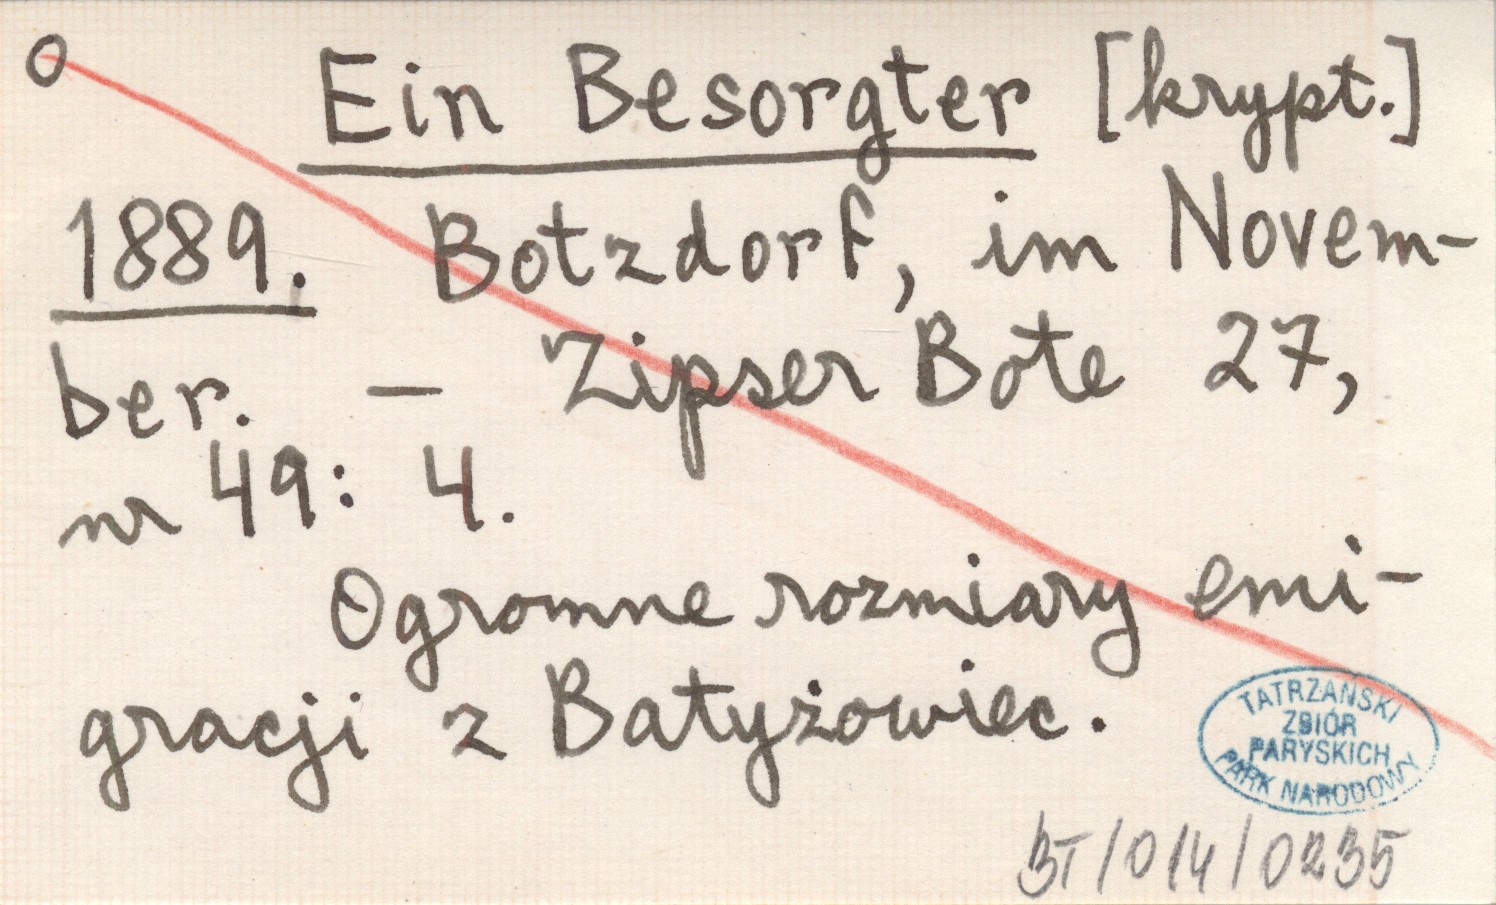 O Ein Besorgter [krypt.]
1889. Botzdorf, im Novem-
ber. — Zipser Bote 27,
nr 49: 4.
Ogromne rozmiary emi-
gracji z Batyżowiec.
TATRZAŃSKI
ZBIÓR
PARYSKICH
PARK NARODOWY
BT/014/0235